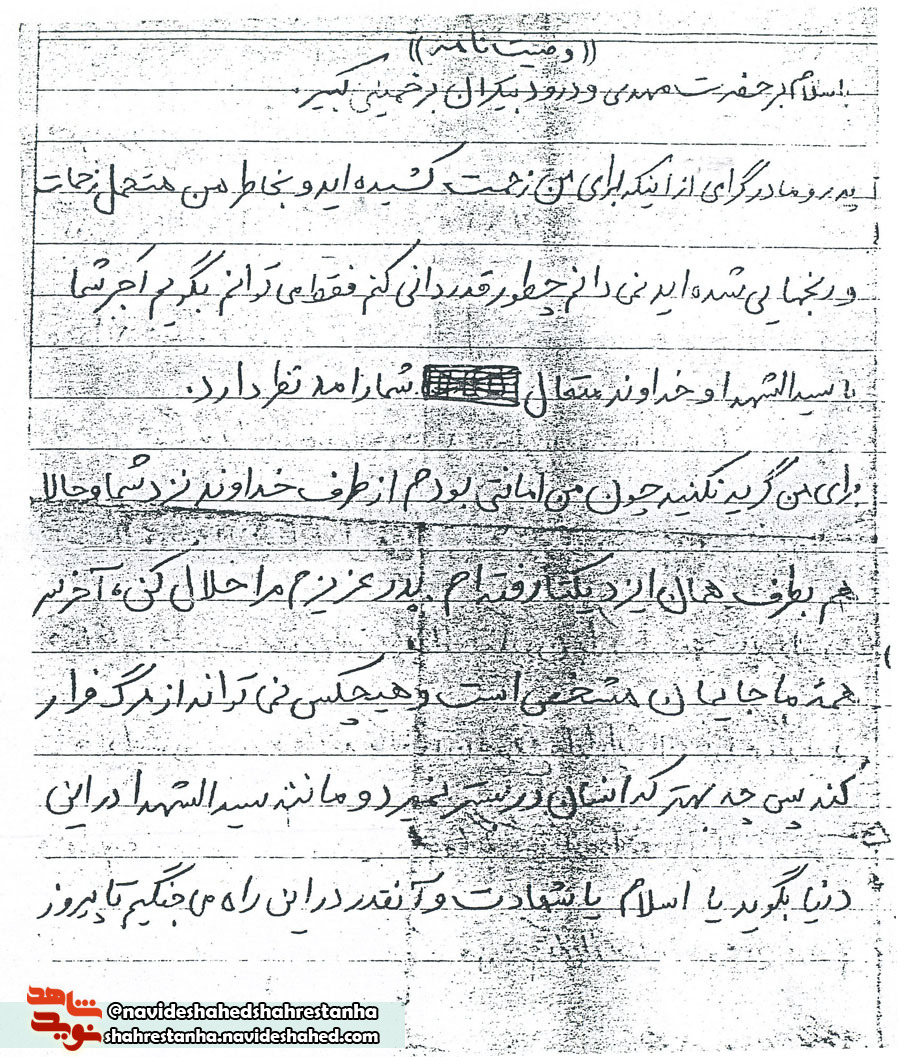 ((وصیت نامه))
باسلام بر حضرت مهدی و درود بیکران بر خمینی کبیر.
پدر و مادر گرامی از اینکه برای من زحمت کشیده اید و بخاطر من متحمل زحمات
و رنجهایی شده اید نمی دانم چطور قدردانی کنم فقط می توانم بگویم اجر شما
با سیدالشهدا و خداوند متعال شما را مد نظر دارد.
برای من گریه نکنید چون من امانتی بودم از طرف خداوند نزد شما و حالا
هم بطرف همان ایزد یکتا رفته ام. پدر عزیزم مرا حلال کن، آخرش
همهٔ ما جایمان مشخص است و هیچکس نمی تواند از مرگ فرار
کند پس چه بهتر که انسان در بستر نمیرد و مانند سیدالشهدا در این
دنیا بگوید یا اسلام یا شهادت و آنقدر در این راه می جنگیم تا پیروز
شاهد
نوید
@navideshahedshahrestanha
shahrestanha.navideshahed.com